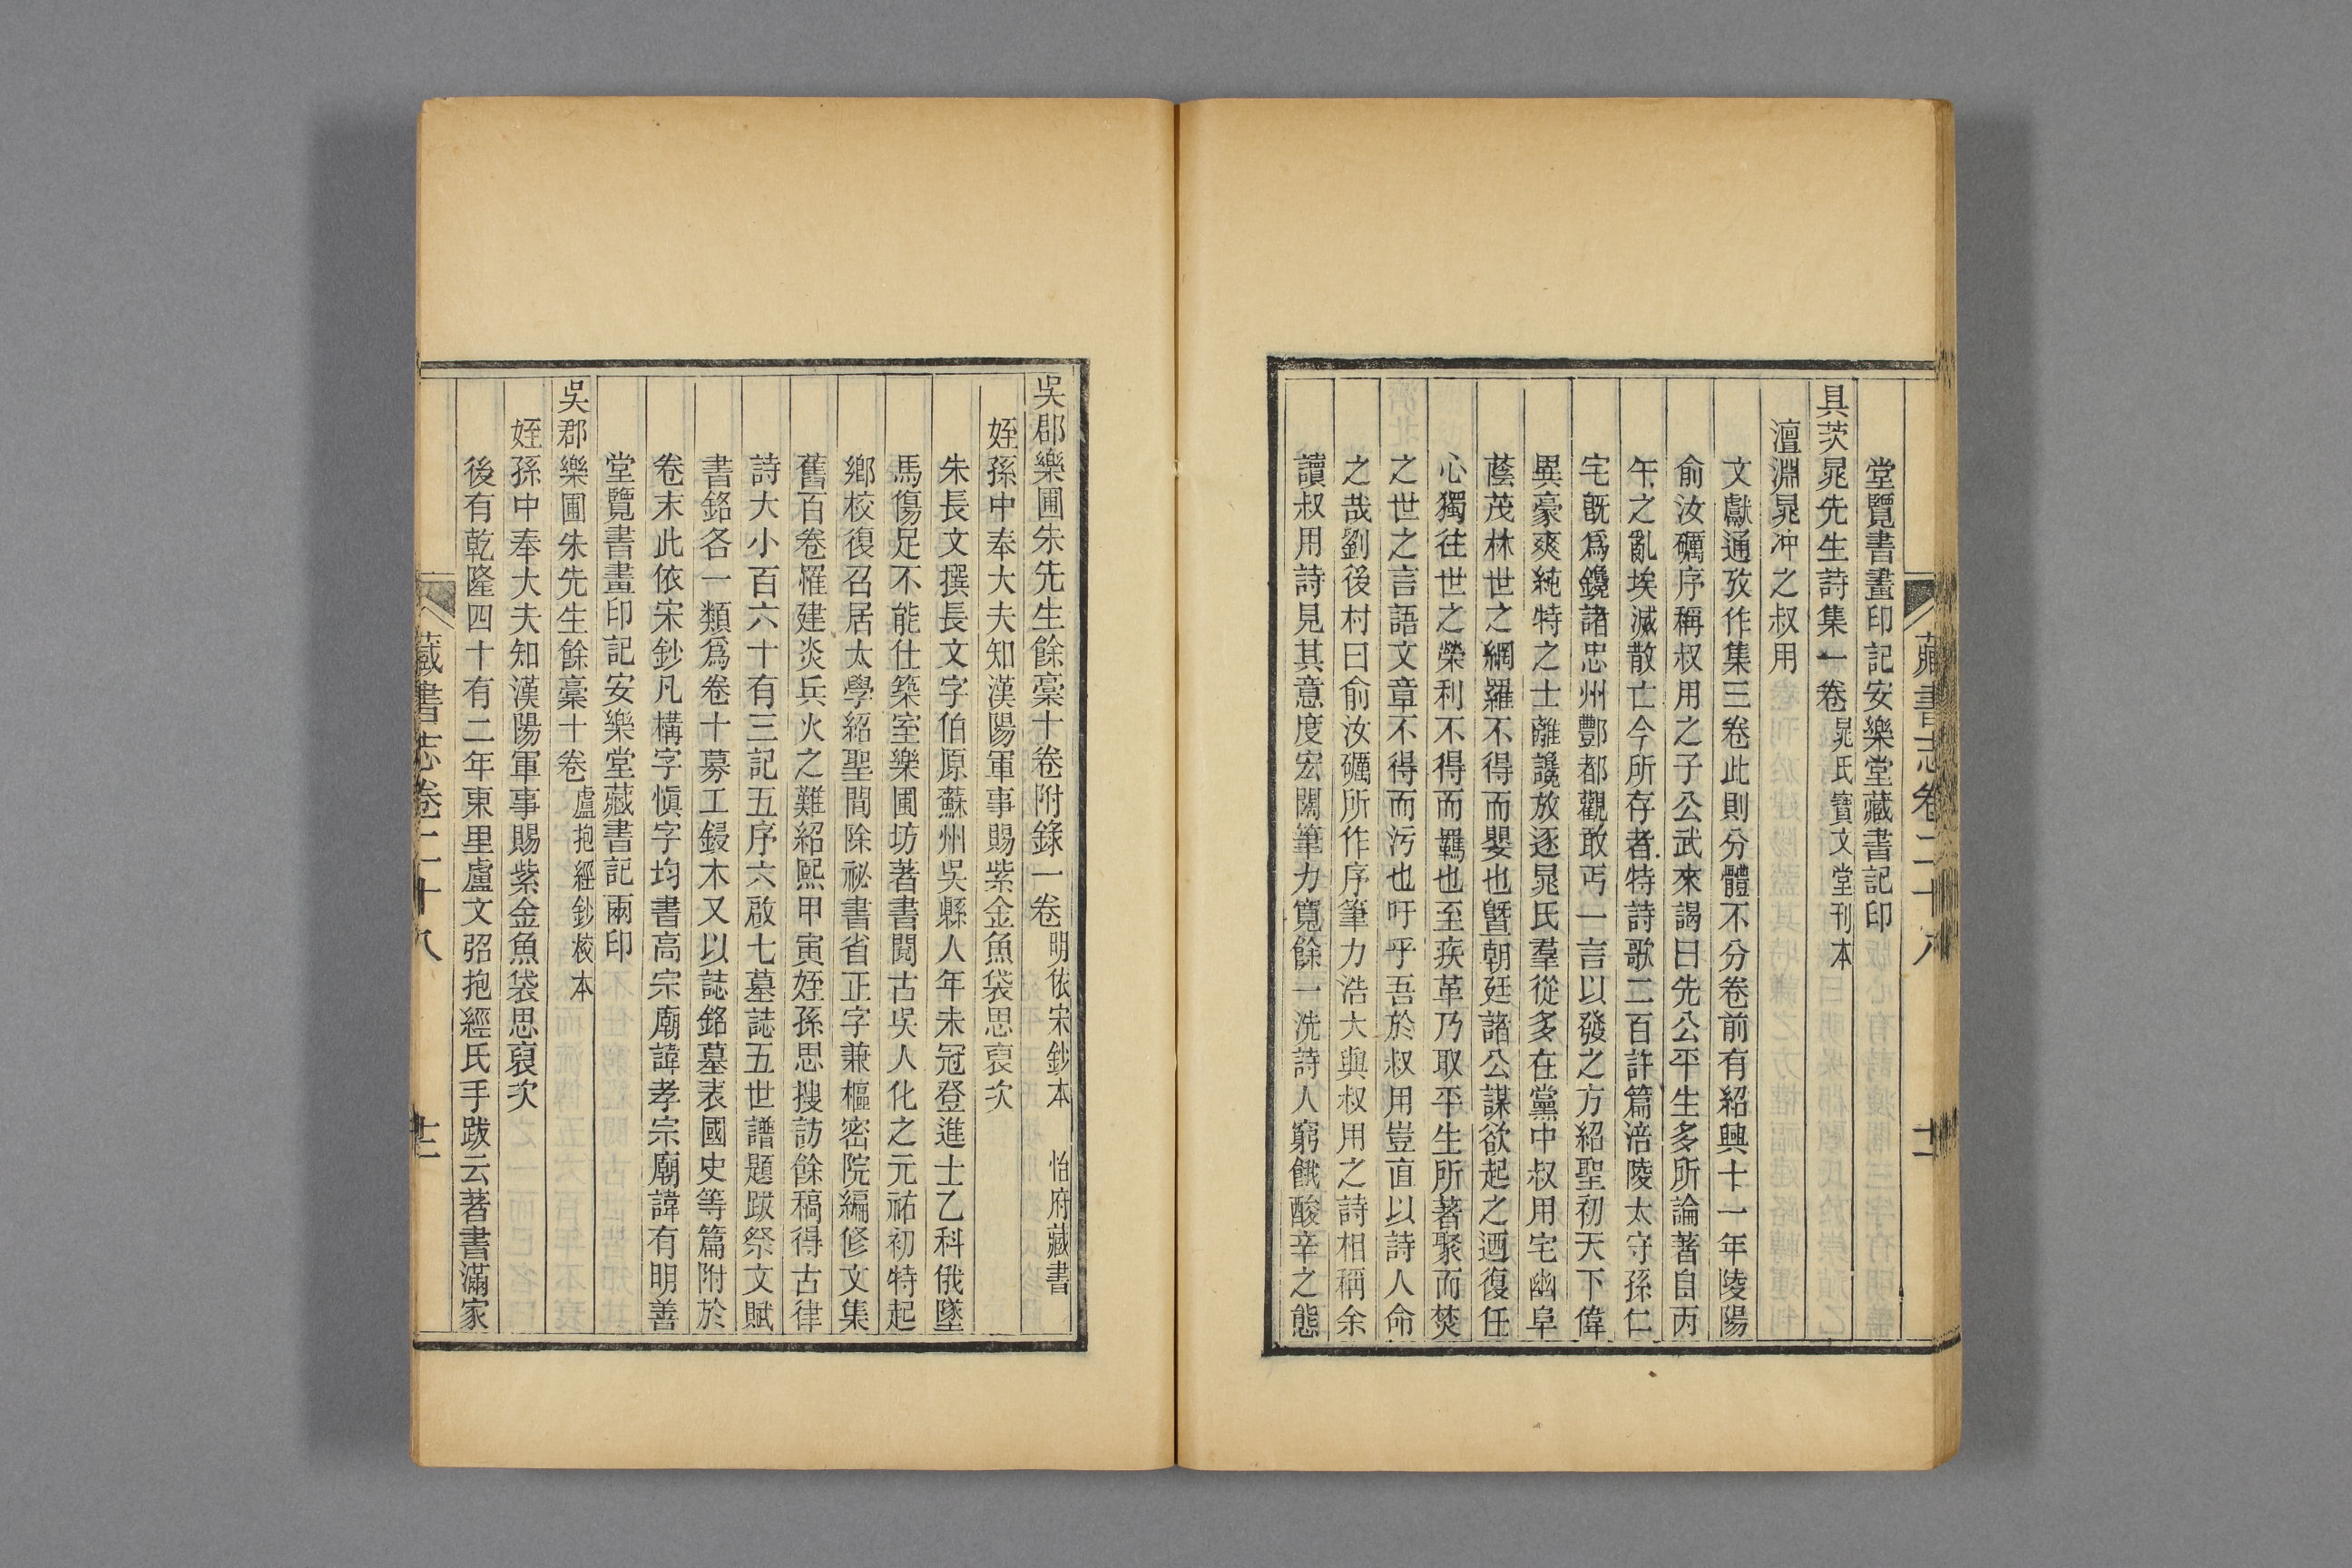 藏書志卷二十八
十二
堂覽書畫印記安樂堂藏書記印
具茨晁先生詩集一卷 晁氏寶文堂刊本
澶淵晁冲之叔用
文獻通攷作集三卷此則分體不分卷前有紹興十一年陵陽
俞汝礪序稱叔用之子公武來謁曰先公平生多所論著自丙
午之亂埃滅散亡今所存者特詩歌二百許篇涪陵太守孫仁
宅旣爲鑱諸忠州酆都觀敢丐一言以發之方紹聖初天下偉
異豪爽純特之士離讒放逐晁氏羣從多在黨中叔用宅幽阜
蔭茂林世之網羅不得而嬰也曁朝廷諸公謀欲起之迺復任
心獨往世之榮利不得而羈也至疾革乃取平生所著聚而焚
之世之言語文章不得而污也吁乎吾於叔用豈直以詩人命
之哉劉後村曰俞汝礪所作序筆力浩大與叔用之詩相稱余
讀叔用詩見其意度宏闊筆力寬餘一洗詩人窮餓酸辛之態
吳郡樂圃朱先生餘稾十卷附錄一卷 明依宋鈔本 怡府藏書
姪孫中奉大夫知漢陽軍事賜紫金魚袋思裒次
朱長文撰長文字伯原蘇州吳縣人年未冠登進士乙科俄墜
馬傷足不能仕築室樂圃坊著書閱古吳人化之元祐初特起
鄉校復召居太學紹聖間除祕書省正字兼樞密院編修文集
舊百卷罹建炎兵火之難紹熙甲寅姪孫思搜訪餘稿得古律
詩大小百六十有三記五序六啟七墓誌五世譜題跋祭文賦
書銘各一類爲卷十募工鋟木又以誌銘墓表國史等篇附於
卷末此依宋鈔凡構字愼字均書高宗廟諱孝宗廟諱有明善
堂覽書畫印記安樂堂藏書記兩印
吳郡樂圃朱先生餘稾十卷 盧抱經鈔校本
姪孫中奉大夫知漢陽軍事賜紫金魚袋思裒次
後有乾隆四十有二年東里盧文弨抱經氏手跋云著書滿家
藏書志卷二十八